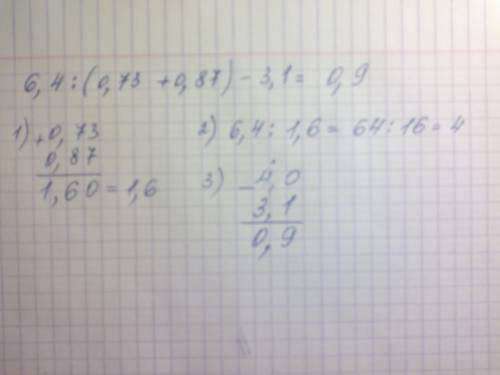 6,4 : (0,73 + 0,87) - 3,1 = 0,9
1) + 0,73
0,87
1,60 = 1,6
2) 6,4 : 1,6 = 64 : 16 = 4
3) - 4,0
3,1
0,9